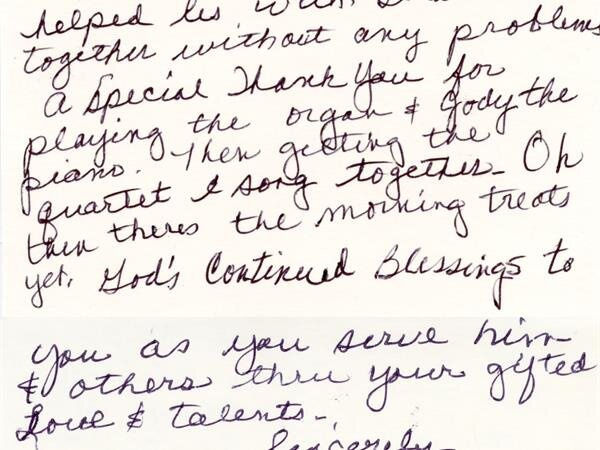 helped us with
together without any problems
A Special Thank You for
playing the organ & Jody the
piano. Then getting the
quartet & song together - Oh
then theres the morning treats
yet. God's Continued Blessings to
you as you serve him
& others thru your gifted
Love & talents -
Sincerely